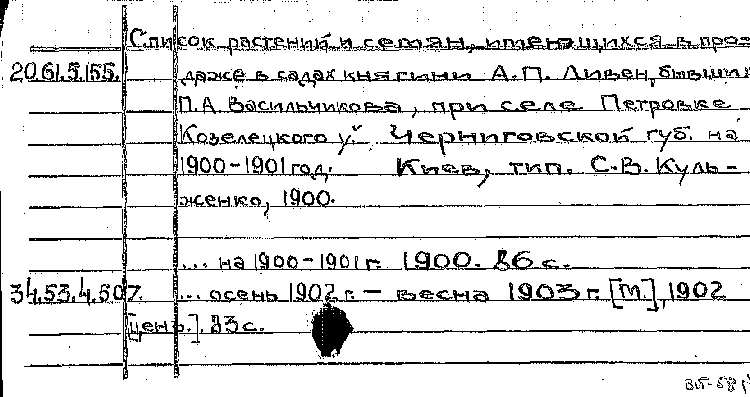 Список растений и семян, имеющихся в про-
20.61.5.155. даже в садах княгини А.П. Ливен, бывших
П.А. Васильчикова, при селе Петровке
Козелецкого у. Черниговской губ. на
1900-1901 год. Киев, тип. С.В. Куль-
женко, 1900.
... на 1900-1901 г. 1900. 86 с.
34.53.4.507. ... осень 1902 г. - весна 1903 г. [М.], 1902
[ценз.]. 83 с.